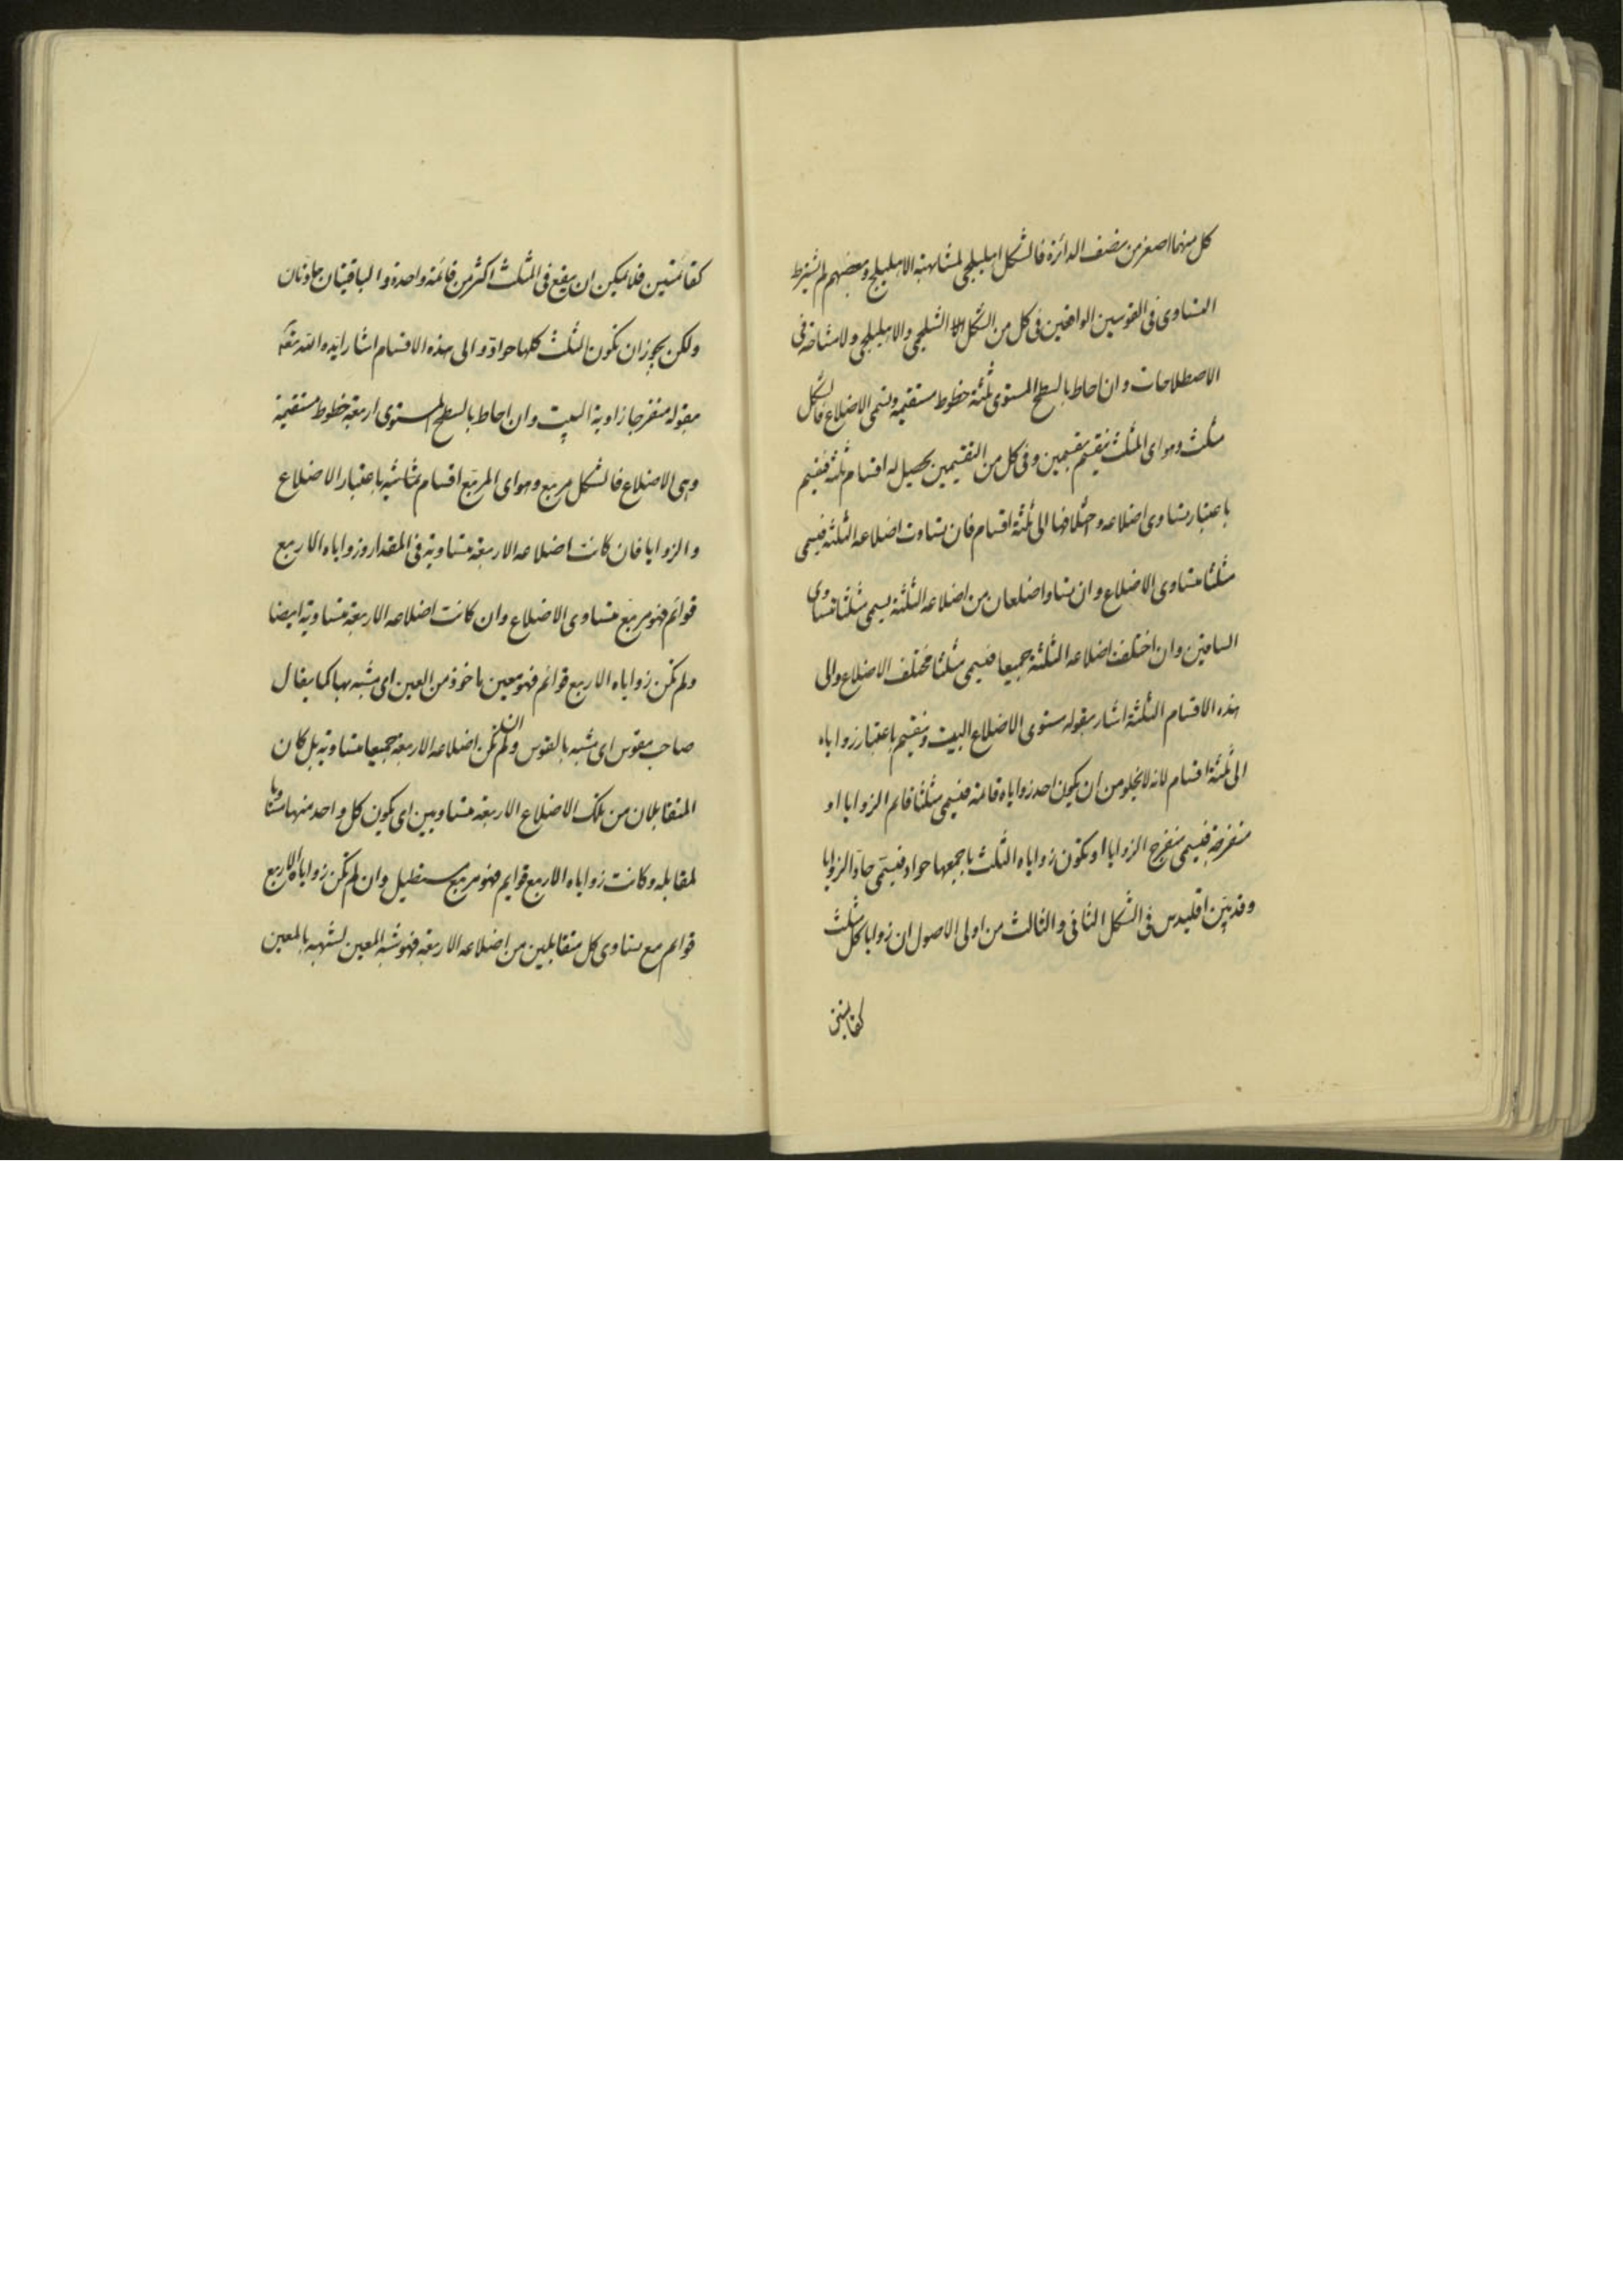 كل منهما اصغر من نصف الدائرة فالشكل اهليلجى لمشابهته الاهليلج وبعضهم لم يشترط
التساوى فى القوسين الواقعين فى كل من الشكل الشلجمى والاهليلجى ولا مشاحة فى
الاصطلاحات وان احاط بالسطح المستوى ثلثة خطوط مستقيمة وتسمى الاضلاع فالشكل
مثلث وهو اى المثلث ينقسم بقسمين وفى كل من التقسيمين يحصل له اقسام ثلثة فينقسم
باعتبار تساوى اضلاعه واختلافها الى ثلثة اقسام فان تساوت اضلاعه الثلثة فيسمى
مثلثا متساوى الاضلاع وان تساوا ضلعان من اضلاعه الثلثة يسمى مثلثا متساوى
الساقين وان اختلف اضلاعه الثلثة جميعا فيسمى مثلثا مختلف الاضلاع والى
هذه الاقسام الثلثة اشار بقوله مستوى الاضلاع البيت وينقسم باعتبار زواياه
الى ثلثة اقسام لانه لا يخلو من ان يكون احد زواياه قائمة فيسمى مثلثا قائم الزوايا او
منفرجة فيسمى منفرج الزوايا او تكون زواياه الثلث باجمعها حواد فيسمى حاد الزوايا
وقد بين اقليدس فى الشكل الثانى والثالث من اولى الاصول ان زوايا كل مثلث
كقائمتين
كقائمتين فلا يمكن ان يقع فى المثلث اكثر من قائمة واحدة والباقيتان حادتان
ولكن يجوز ان تكون الثلث كلها حوادّ والى هذه الاقسام اشار ايده الله
بقوله منفرجا زاوية البيت وان احاط بالسطح المستوى اربعة خطوط مستقيمة
وهى الاضلاع فالشكل مربع وهو اى المربع اقسام باعتبار الاضلاع
والزوايا فان كانت اضلاعه الاربعة متساوية فى المقدار وزواياه الاربع
قوائم فهو مربع متساوى الاضلاع وان كانت اضلاعه الاربعة متساوية ايضا
ولم تكن زواياه الاربع قوائم فهو معين ماخوذ من العين اى مشبه بها كما يقال
صاحب مقوس اى مشبه بالقوس وان لم تكن اضلاعه الاربعة جميعا متساوية بل كان
المتقابلان من تلك الاضلاع الاربعة متساويين اى يكون كل واحد منها مساويا
لمقابله وكانت زواياه الاربع قوايم فهو مربع مستطيل وان لم تكن زواياه الاربع
قوايم مع تساوى كل متقابلين من اضلاعه الاربعة فهو شبه المعين لشبهه بالمعين